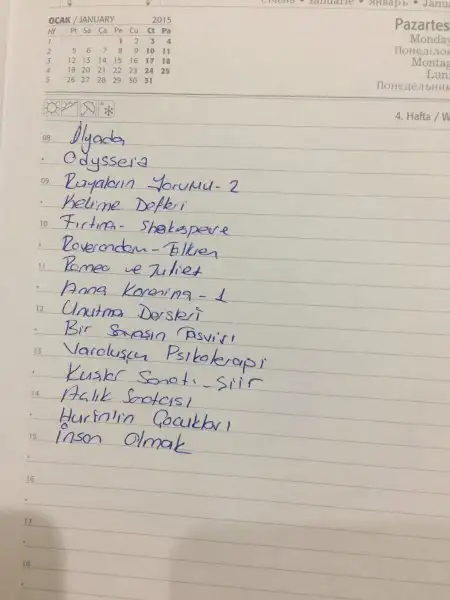 OCAK / JANUARY 2015
Hf Pt Sa Ça Pe Cu Ct Pa
1 1 2 3 4
2 5 6 7 8 9 10 11
3 12 13 14 15 16 17 18
4 19 20 21 22 23 24 25
5 26 27 28 29 30 31
Pazartes
Monday
Montag
Понедельник
4. Hafta / W
08 İlyada
Odysseia
09 Rüyaların Yorumu - 2
Kelime Defteri
10 Fırtına - Shakespeare
Roverandom - Tolkien
11 Romeo ve Juliet
Anna Karenina - 1
12 Unutma Dersleri
Bir Savaşın Tasviri
13 Varoluşçu Psikoterapi
Kuşlar Sanatı - Şiir
14 Açlık Sanatçısı
Hurin'in Çocukları
15 İnsan Olmak
16
17
18